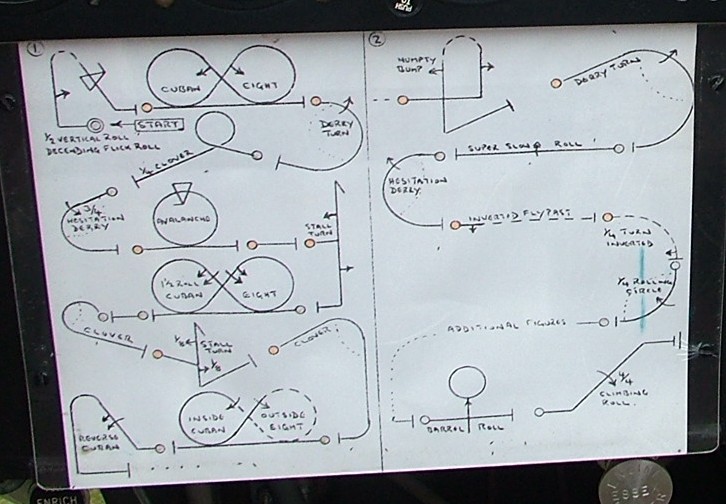 PUSH
TO
1
CUBAN EIGHT
START
1/2 VERTICAL ROLL
DECENDING FLICK ROLL
DERRY
TURN
1/4 CLOVER
3/4
HESITATION
DERRY
AVALANCHE
STALL
TURN
1 1/2 ROLL
CUBAN EIGHT
CLOVER
1/8 STALL
TURN
1/8
CLOVER
REVERSE
CUBAN
INSIDE
CUBAN
OUTSIDE
EIGHT
2
HUMPTY
BUMP
DERRY TURN
SUPER SLOW ROLL
HESITATION
DERRY
INVERTED FLYPAST
1/4 TURN
INVERTED
1/4 ROLLING
CIRCLE
ADDITIONAL FIGURES
BARREL ROLL
4/4
CLIMBING
ROLL
ENRICH